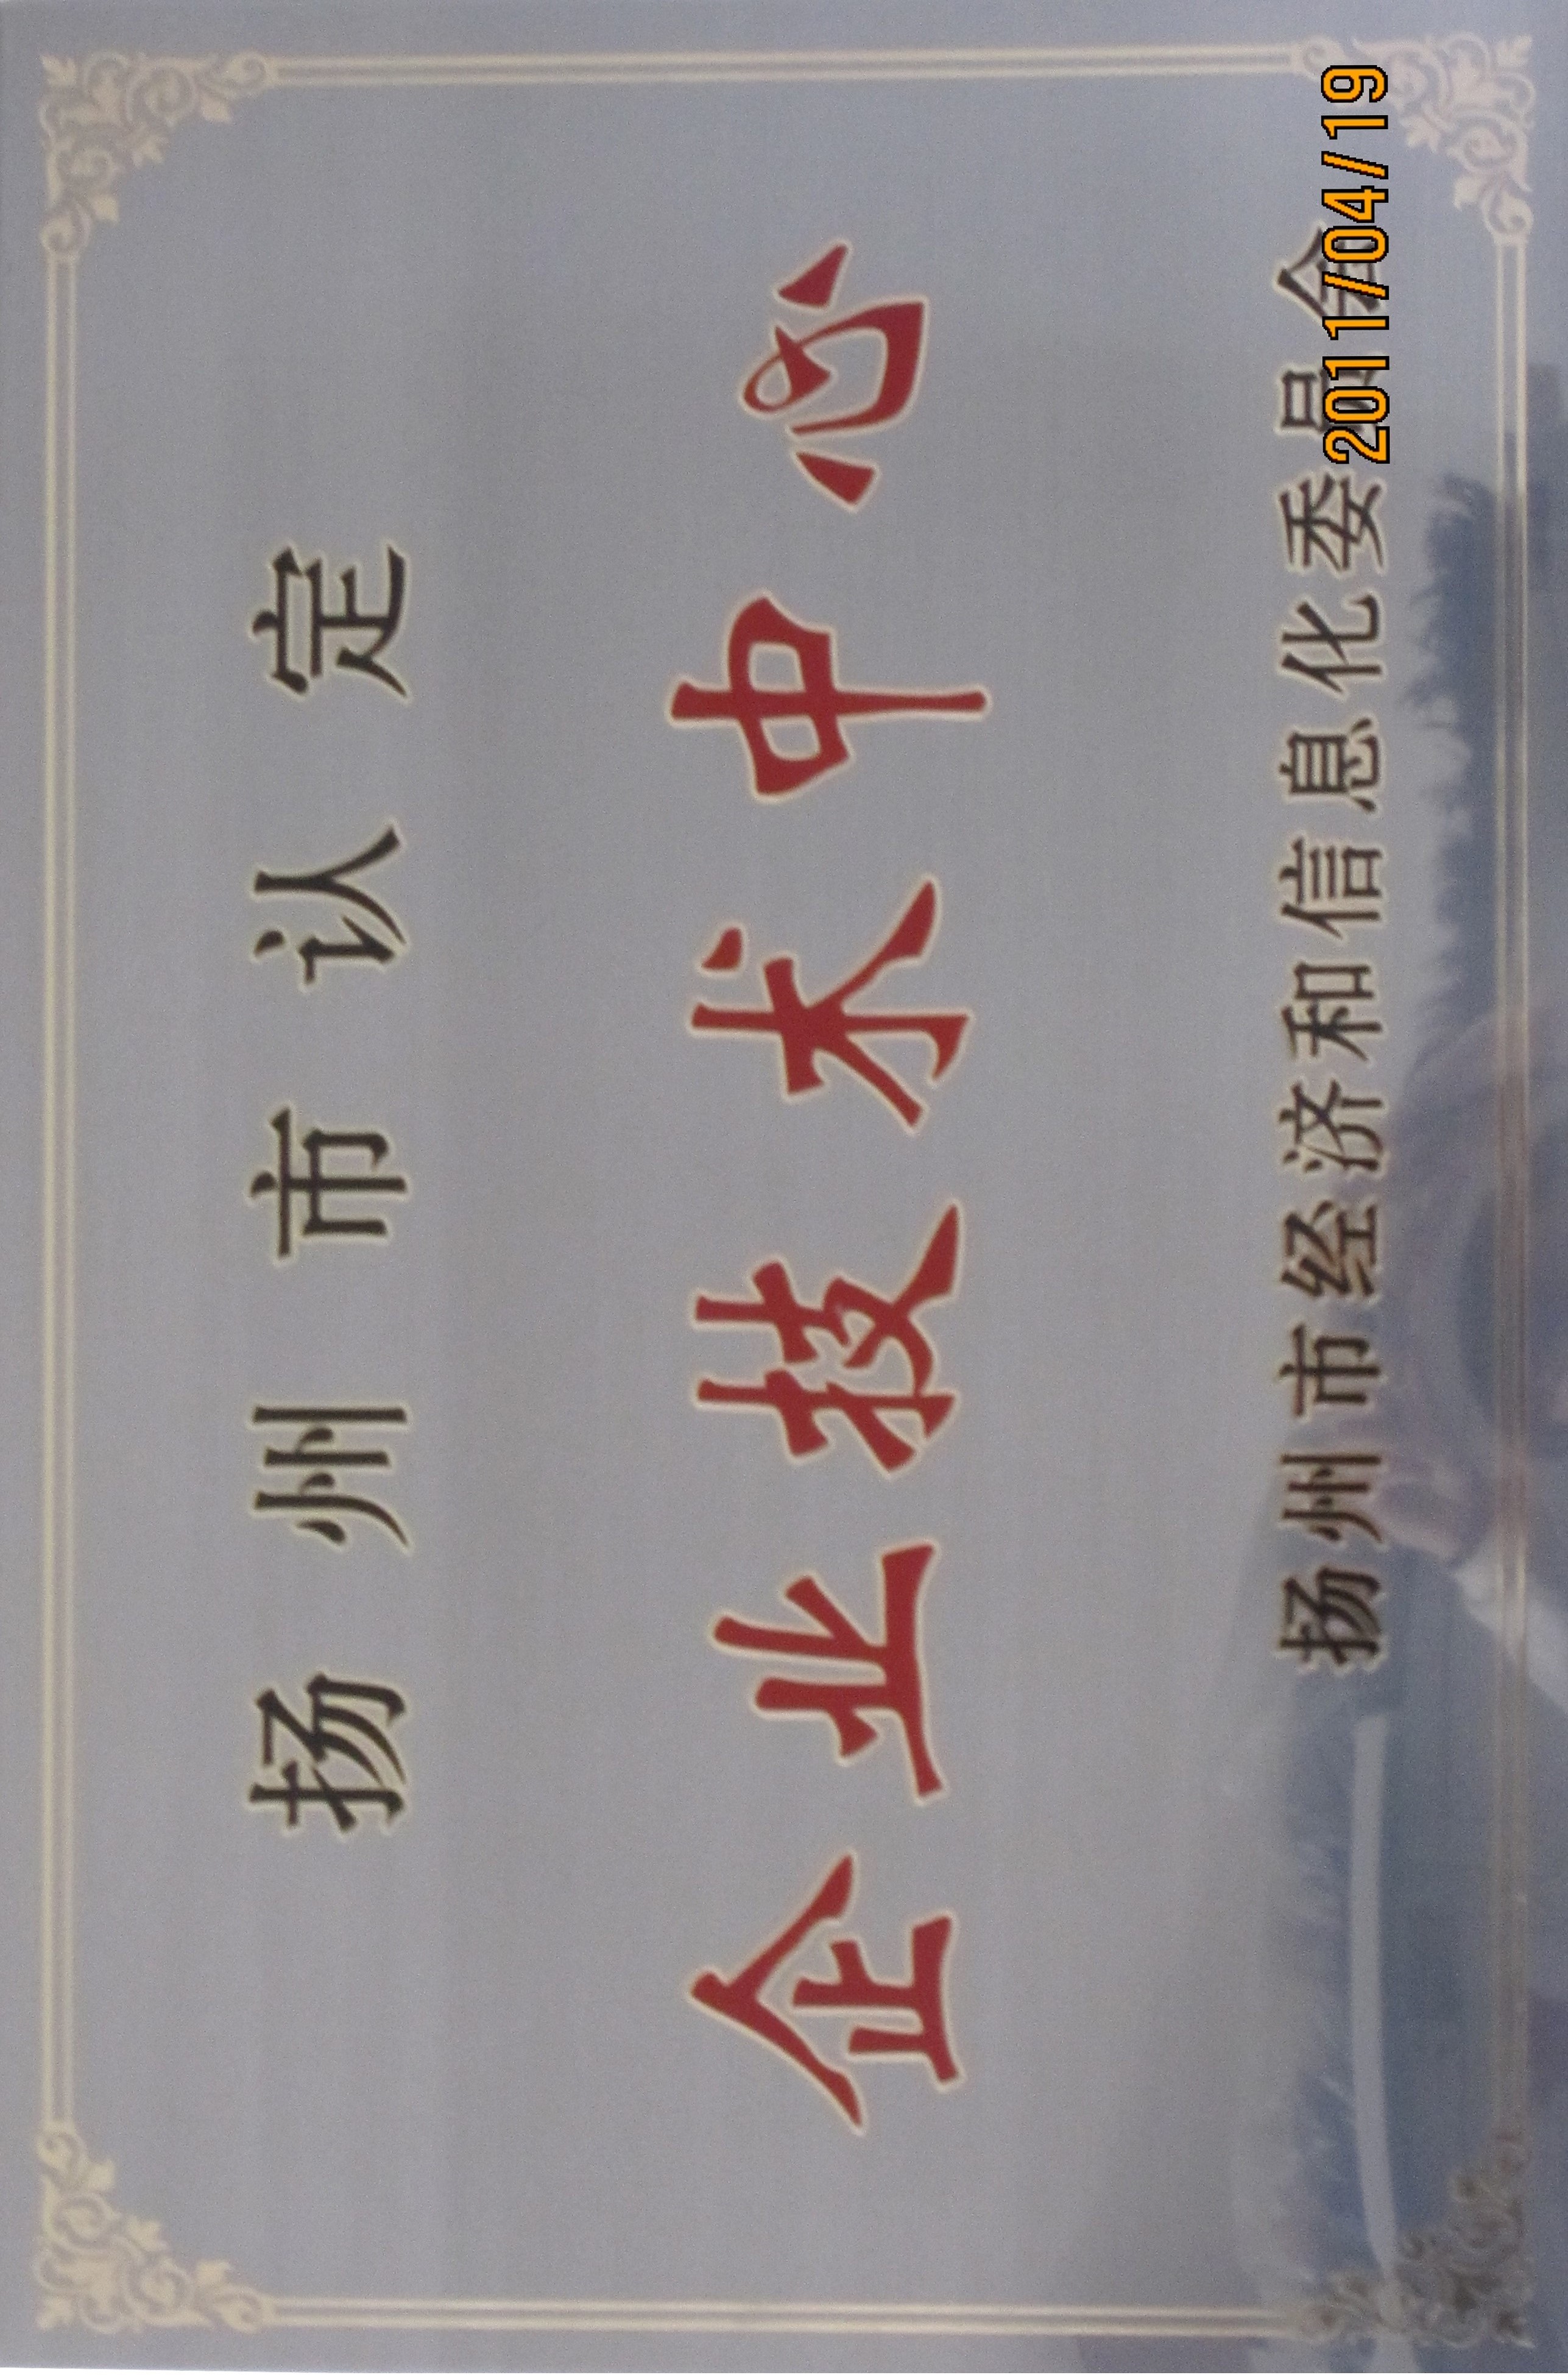 扬州市认定
企业技术中心
扬州市经济和信息化委员会
2011/04/19